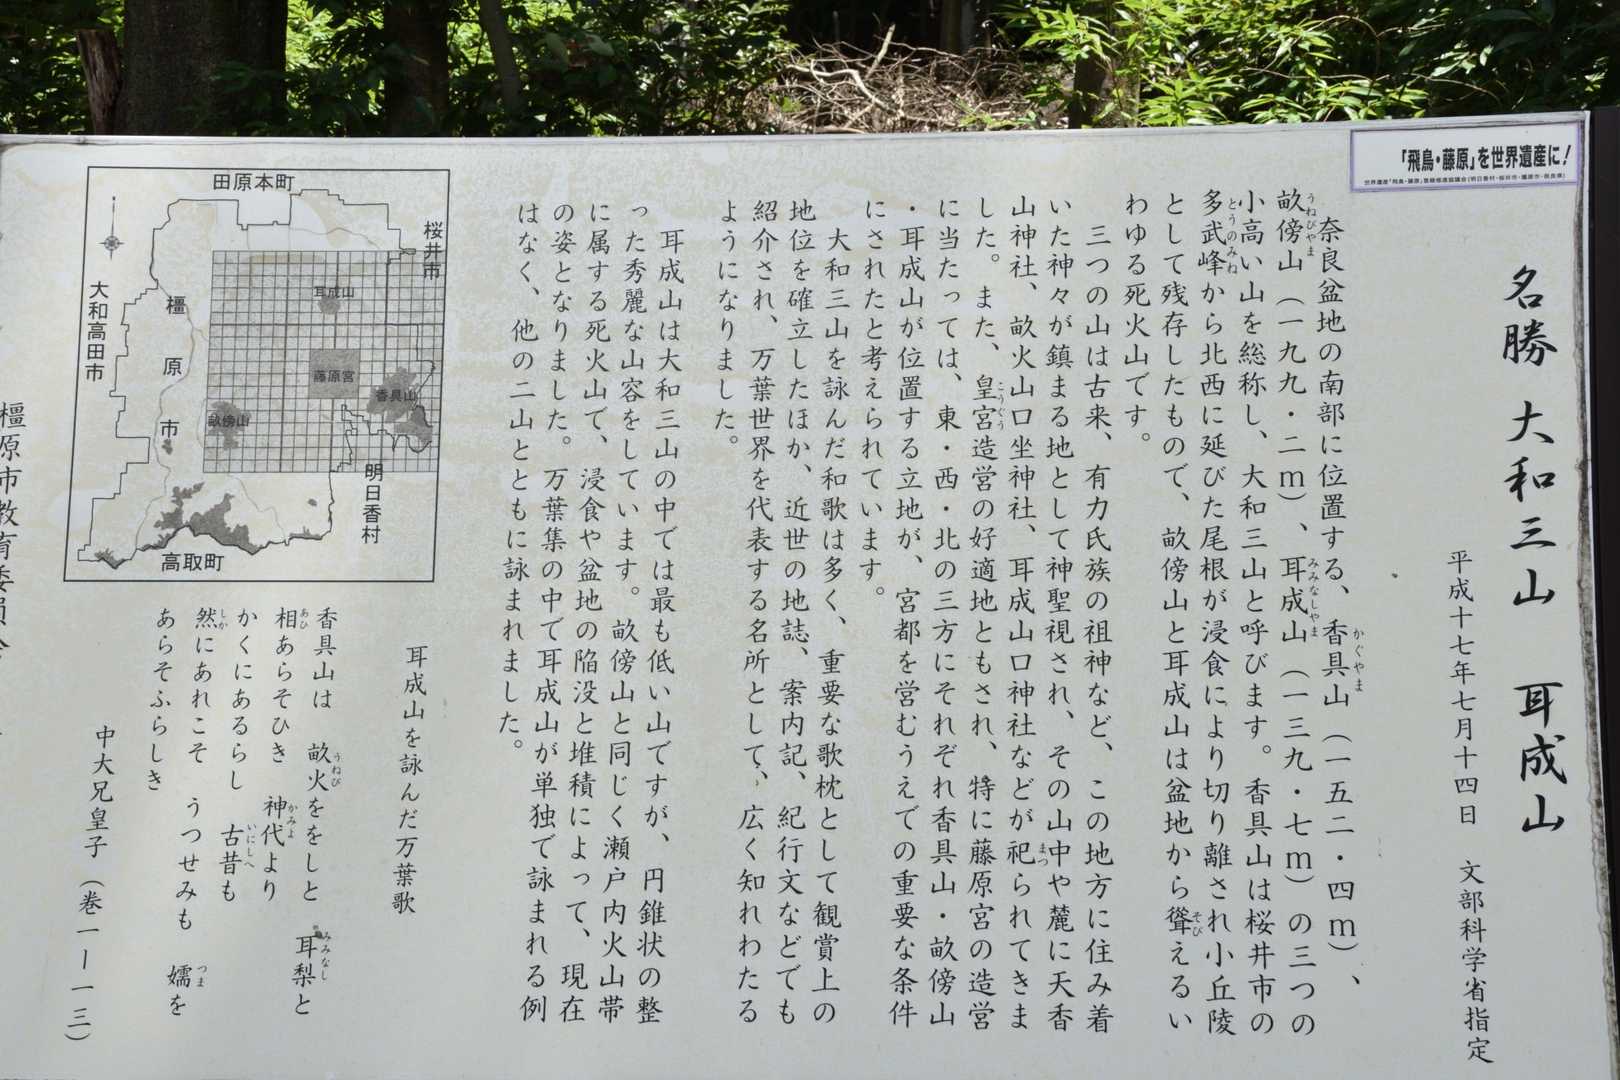 「飛鳥・藤原」を世界遺産に！
世界遺産「飛鳥・藤原」登録推進協議会(明日香村・桜井市・橿原市・奈良県)
名勝 大和三山 耳成山
平成十七年七月十四日 文部科学省指定
奈良盆地の南部に位置する、香具山（一五二・四ｍ）、
畝傍山（一九九・二ｍ）、耳成山（一三九・七ｍ）の三つの
小高い山を総称し、大和三山と呼びます。香具山は桜井市の
多武峰から北西に延びた尾根が浸食により切り離され小丘陵
として残存したもので、畝傍山と耳成山は盆地から聳えるい
わゆる死火山です。
三つの山は古来、有力氏族の祖神など、この地方に住み着
いた神々が鎮まる地として神聖視され、その山中や麓に天香
山神社、畝火山口坐神社、耳成山口神社などが祀られてきま
した。また、皇宮造営の好適地ともされ、特に藤原宮の造営
に当たっては、東・西・北の三方にそれぞれ香具山・畝傍山
・耳成山が位置する立地が、宮都を営むうえでの重要な条件
にされたと考えられています。
大和三山を詠んだ和歌は多く、重要な歌枕として観賞上の
地位を確立したほか、近世の地誌、案内記、紀行文などでも
紹介され、万葉世界を代表する名所として、広く知れわたる
ようになりました。
耳成山は大和三山の中では最も低い山ですが、円錐状の整
った秀麗な山容をしています。畝傍山と同じく瀬戸内火山帯
に属する死火山で、浸食や盆地の陥没と堆積によって、現在
の姿となりました。万葉集の中で耳成山が単独で詠まれる例
はなく、他の二山とともに詠まれました。
耳成山を詠んだ万葉歌
香具山は 畝火ををしと 耳梨と
相あらそひき 神代より
かくにあるらし 古昔も
然にあれこそ うつせみも 嬬を
あらそふらしき
中大兄皇子（巻一―一三）
田原本町
桜井市
大和高田市
橿原市
耳成山
藤原宮
香具山
畝傍山
明日香村
高取町
橿原市教育委員会